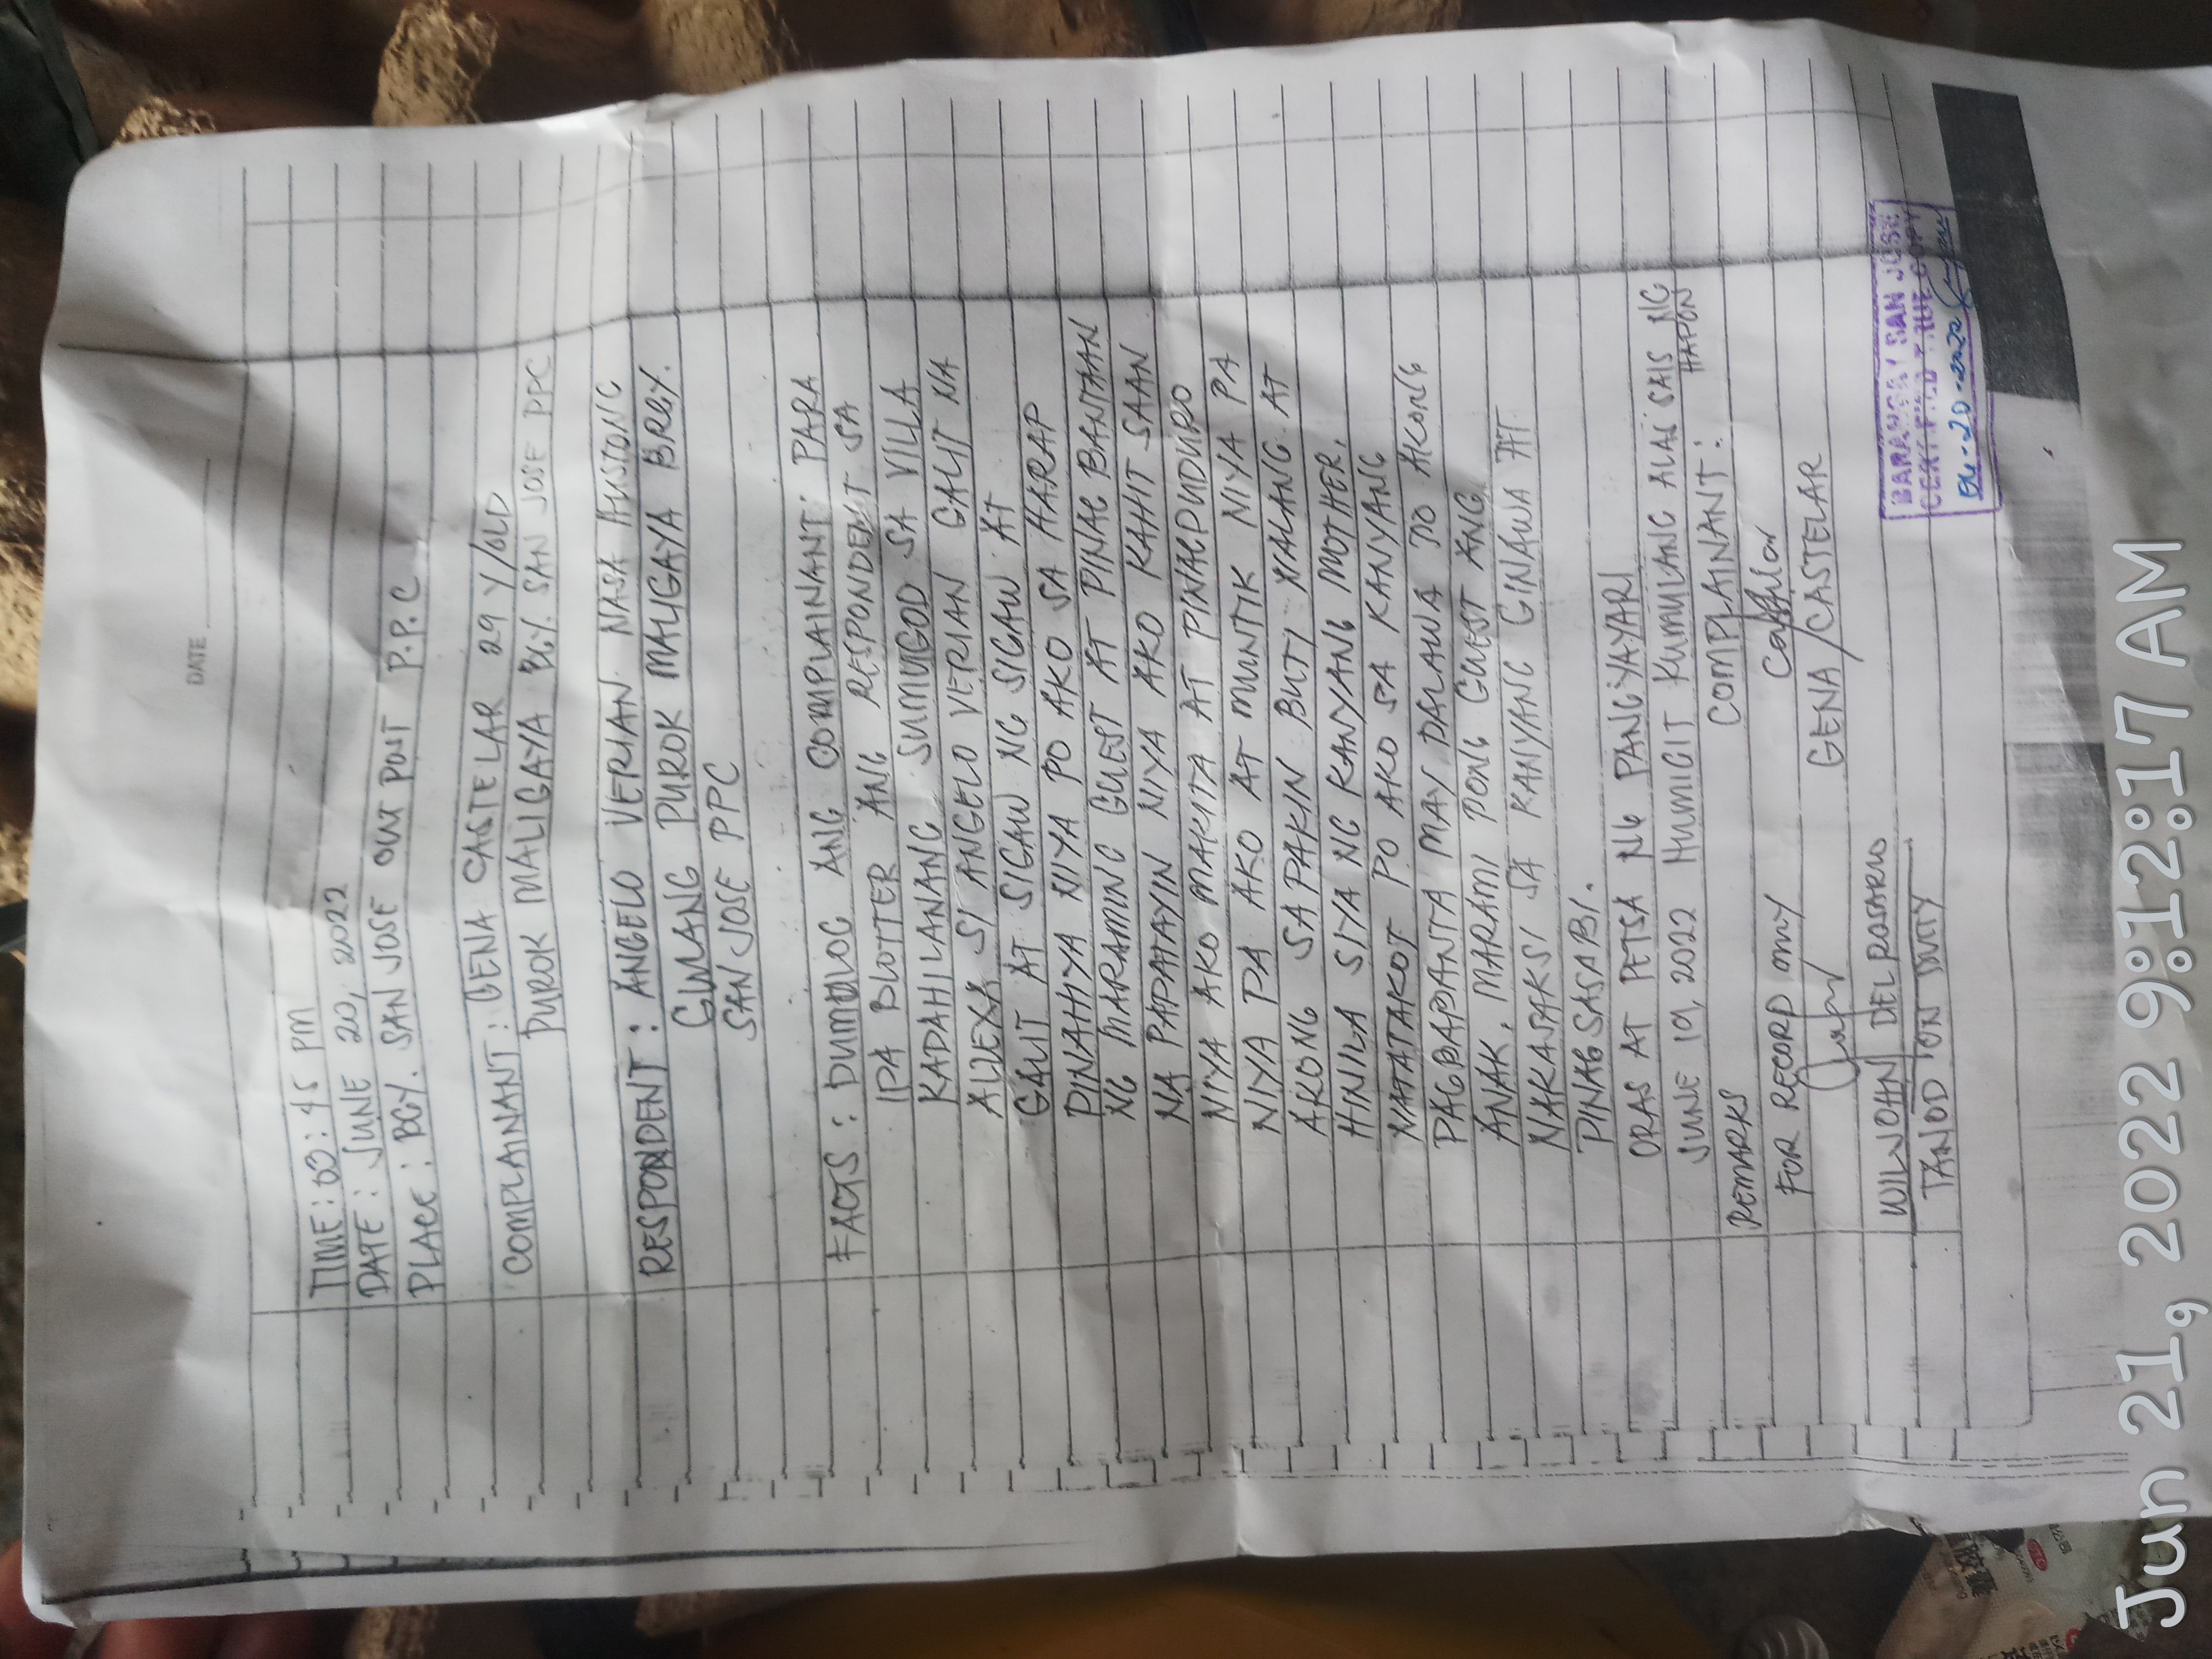 DATE
TIME: 02:45 PM
DATE: JUNE 20, 2022
PLACE: BGY. SAN JOSE OUT POST P.P.C
COMPLAINANT: GENA CASTELAR 29 Y/OLD
PUROK MALIGAYA BGY. SAN JOSE PPC
RESPONDENT: ANGELO VERIAN NASA HUSTONG
GULANG PUROK MALIGAYA BRGY.
SAN JOSE PPC
FACTS: DUMULOG ANG COMPLAINANT: PARA
IPA BLOTTER ANG RESPONDENT SA
KADAHILANANG SUMUGOD SA VILLA
ALLEXX SI ANGELO VERIAN GALIT NA
GALIT AT SIGAW NG SIGAW AT
PINAHIYA NIYA PO AKO SA HARAP
NG MARAMING GUEST AT PINAG BANTAAN
NA PAPATAYIN NIYA AKO KAHIT SAAN
NIYA AKO MAKITA AT PINAGPUDURO
NIYA PA AKO AT MUNTIK NIYA PA
AKONG SAPAKIN BUTI NALANG AT
HINILA SIYA NG KANYANG MOTHER.
NATATAKOT PO AKO SA KANYANG
PAGBABANTA MAY DALAWA PO AKONG
ANAK. MARAMI PONG GUEST ANG
NAKASAKSI SA KANYANG GINAWA AT
PINAGSASABI.
ORAS AT PETSA NG PANGYAYARI
JUNE 19, 2022 HUMIGIT KUMULANG ALAS SAIS NG
HAPON
REMARKS COMPLAINANT:
FOR RECORD ONLY
GENA CASTELAR
WILJOHN DEL ROSARIO
TANOD ON DUTY
BARANGAY SAN JOSE
CERTIFIED TRUE COPY
06-20-2022
Jun 21, 2022 9:12:17 AM